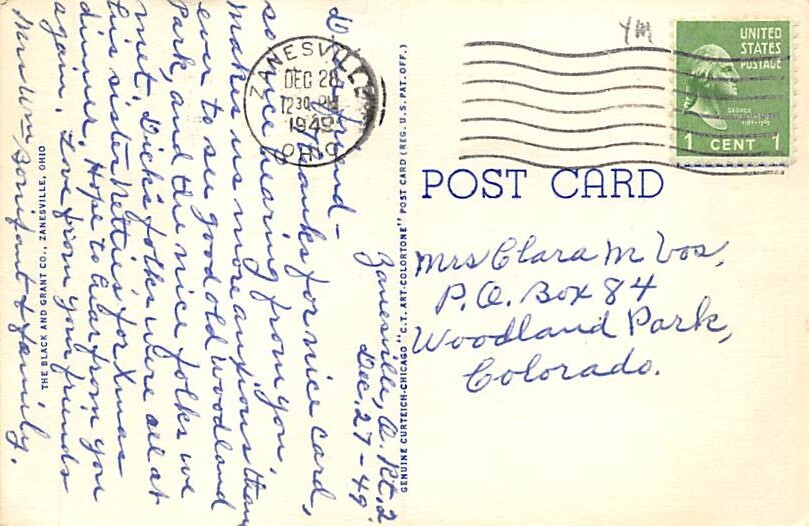 Zanesville, O. Rt. 2.
Dec. 27-49
Dear friend -
Thanks for nice card,
so nice hearing from you.
Makes us more anxious than
ever to see good old Woodland
Park, and the nice folks we
met. Dick's folks were all at
his sister Nettie's for Xmas
dinner. Hope to hear from you
again. Love from your friends
Mrs Wm Bonifant & family.
THE BLACK AND GRANT CO., ZANESVILLE, OHIO
GENUINE CURTEICH-CHICAGO "C.T. ART-COLORTONE" POST CARD (REG. U.S. PAT. OFF.)
ZANESVILLE
DEC 28
12 30 PM
1949
OHIO
YM
UNITED
STATES
POSTAGE
GEORGE
1 CENT 1
POST CARD
Mrs Clara M Vos,
P.O. Box 84
Woodland Park,
Colorado.